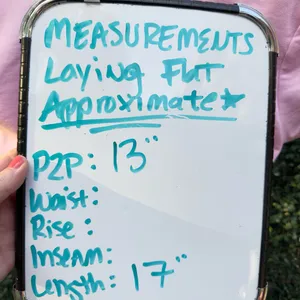 MEASUREMENTS
Laying Flat
Approximate★
P2P: 13"
Waist:
Rise:
Inseam:
Length: 17"